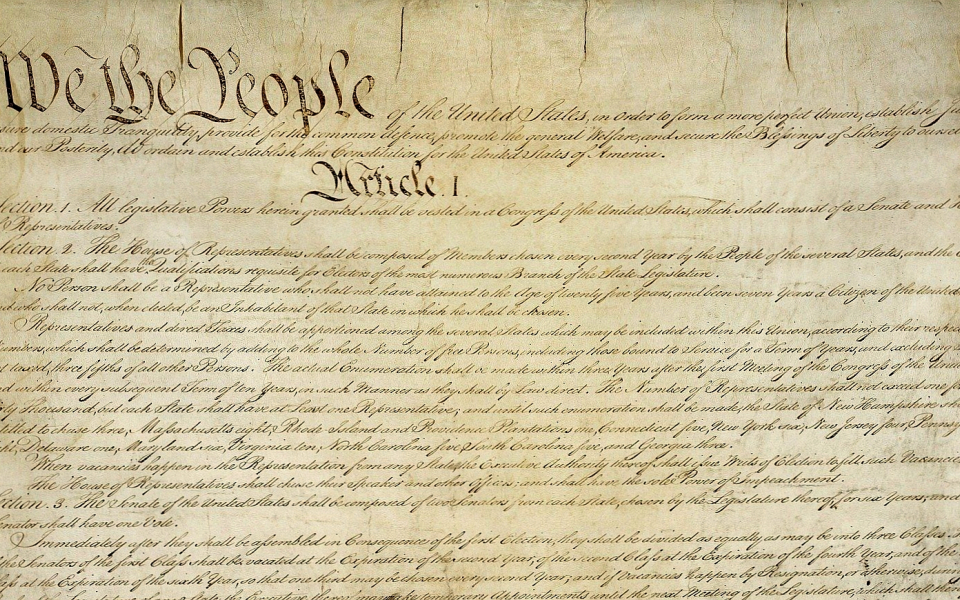 We the People of the United States, in Order to form a more perfect Union, establish
domestic Tranquility, provide for the common defence, promote the general Welfare, and secure the Bleſsings of Liberty to
our Posterity, do ordain and establish this Constitution for the United States of America.
Article. I.
Section. 1. All legislative Powers herein granted shall be vested in a Congreſs of the United States, which shall consist of a Senate and
Representatives.
Section. 2. The House of Representatives shall be composed of Members chosen every second Year by the People of the several States, and the
each State shall have the Qualifications requisite for Electors of the most numerous Branch of the State Legislature.
No Person shall be a Representative who shall not have attained to the Age of twenty five Years, and been seven Years a Citizen of the United
who shall not, when elected, be an Inhabitant of that State in which he shall be chosen.
Representatives and direct Taxes shall be apportioned among the several States which may be included within this Union, according to their
Numbers, which shall be determined by adding to the whole Number of free Persons, including those bound to Service for a Term of Years, and excluding
taxed, three fifths of all other Persons. The actual Enumeration shall be made within three Years after the first Meeting of the Congreſs of the
within every subsequent Term of ten Years, in such Manner as they shall by Law direct. The Number of Representatives shall not exceed one
Thousand, but each State shall have at Least one Representative; and until such enumeration shall be made, the State of New Hampshire
to chuse three, Maſsachusetts eight, Rhode-Island and Providence Plantations one, Connecticut five, New-York six, New Jersey four,
Delaware one, Maryland six, Virginia ten, North Carolina five, South Carolina five, and Georgia three.
When vacancies happen in the Representation from any State, the Executive Authority thereof shall iſsue Writs of Election to fill such Vacancies
The House of Representatives shall chuse their Speaker and other Officers; and shall have the sole Power of Impeachment.
Section. 3. The Senate of the United States shall be composed of two Senators from each State, chosen by the Legislature thereof, for six Years; and
Senator shall have one Vote.
Immediately after they shall be aſsembled in Consequence of the first Election, they shall be divided as equally as may be into three Claſses.
Senators of the first Claſs shall be vacated at the Expiration of the second Year, of the second Claſs at the Expiration of the fourth Year, and of the
at the Expiration of the sixth Year, so that one third may be chosen every second Year; and if Vacancies happen by Resignation, or otherwise,
State, the Executive thereof may make temporary Appointments until the next Meeting of the Legislature, which shall